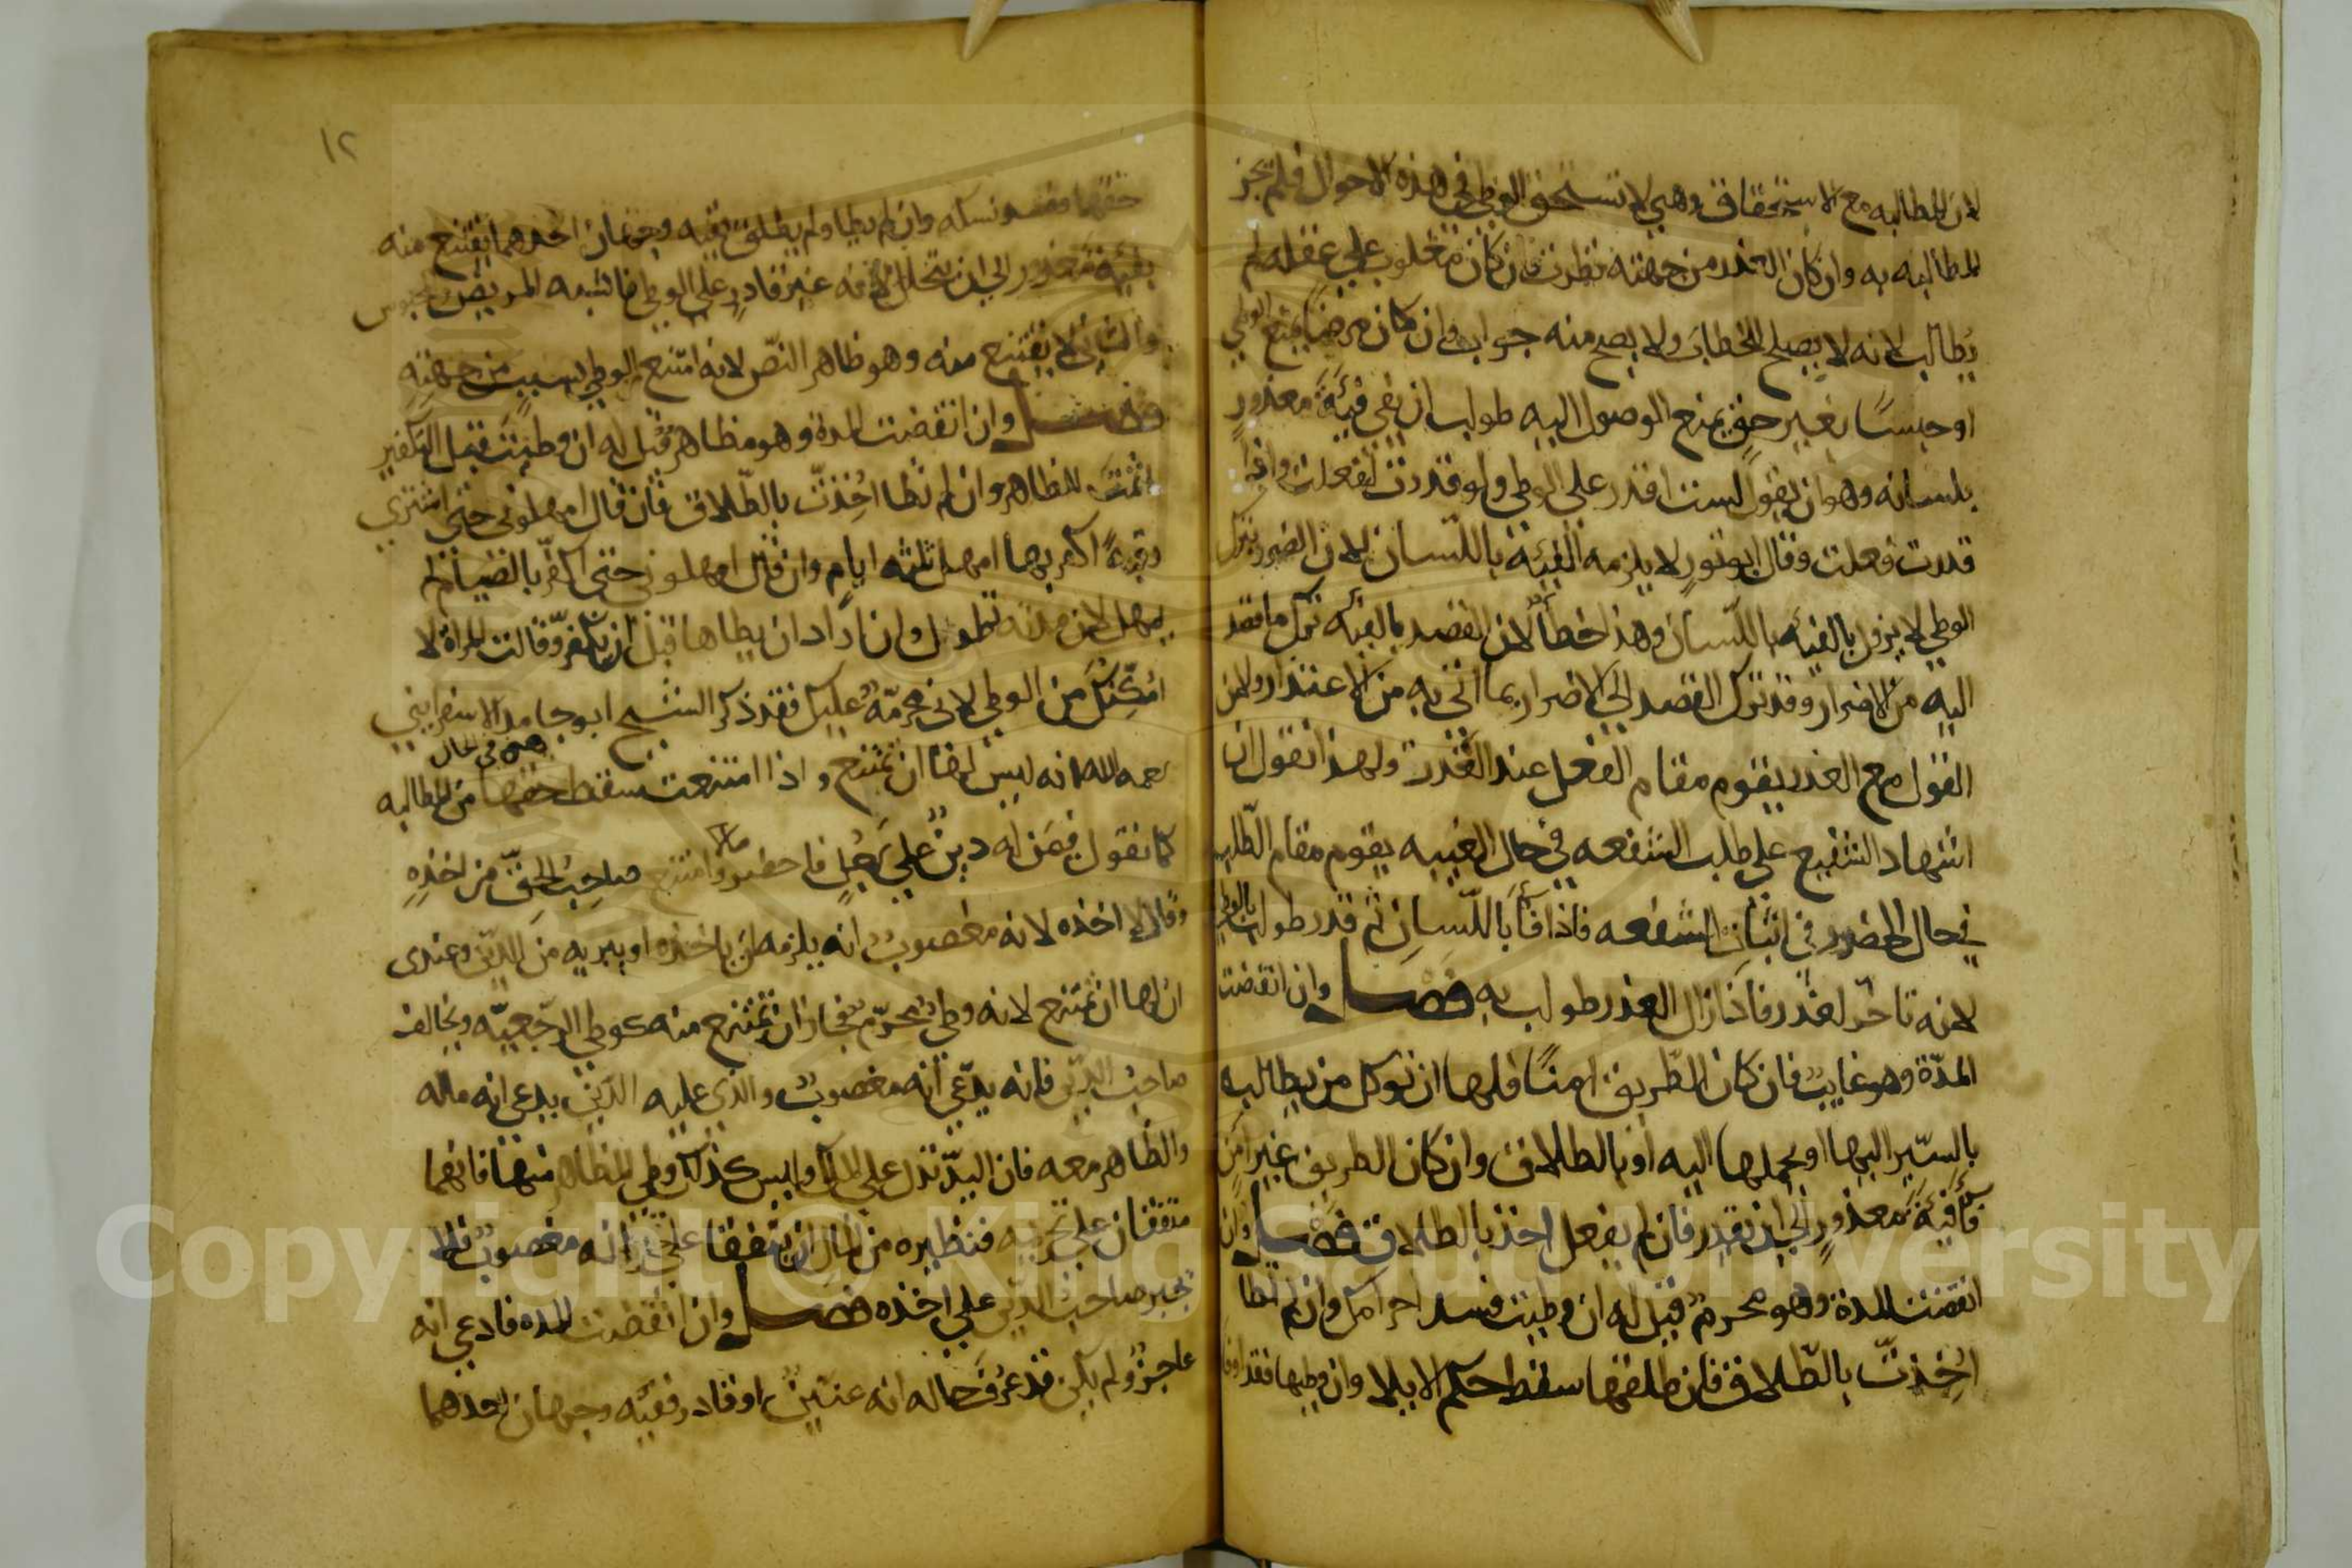 لان المطالبه مع الاستحقاق وهي لا تستحق الوطي في هذه الاحوال فلم تجز
المطالبه به وان كان العذر من جهته نظرت فان كان مغلوب علي عقله لم
يطالب لانه لا يصلح للخطاب ولا يصح منه جواب وان كان مريضا يمنع الوطي
او حبسًا بغير حق يمنع الوصول اليه طولب ان يفي فيئةَ معذورٍ
بلسانه وهو ان يقول لست اقدر على الوطي ولو قدرت لفعلت واذا
قدرت فعلت وقال ابو ثورٍ لا يلزمه الفيئة باللسان لان الضرر بترك
الوطي لا يزول بالفيئه باللسان وهذا خطأٌ لان القصد بالفيئه ترك ما قصد
اليه من الاضرار وقد ترك القصد الي الاضرار بما اتي به من الاعتذار ولان
القول مع العذر يقوم مقام الفعل عند القدرة ولهذا نقول ان
اشهاد الشفيع علي طلب الشفعه في حال الغيبه يقوم مقام الطلب
في حال الحضور في اثبات الشفعه فاذا فأَ باللّسانِ ثم قدر طولب بالوطي
لانه تاخّر لعذرٍ فاذا زال العذر طولب به فصل وان انقضت
المدّة وهو غايب فان كان الطريق امنًا فلها ان توكل من يطالبه
بالسّير اليها او بحملها اليه او بالطلاق وان كان الطريق غير امن
فأَ فيئةَ معذورٍ الي ان يقدر فان لم يفعل اخذ بالطلاق فصل وان
انقضت المدة وهو محرمٌ قيل له ان وطيت فسد احرامك وان لم تطا
اُخِذتَ بالطّلاق فان طلقها سقط حكم الايلا وان وطيها فقد اوفا
١٢
حقها وفسد نسكه وان لم يطا ولم يطلق ففيه وجهان احدهما يقتنع منه
بفيئة معذور الي ان يتحلل لانه غير قادرٍ علي الوطي فاشبه المريض والمحبوس
والثاني لا يقتنع منه وهو ظاهر النصّ لانه امتنع الوطي بسبب من جهته
فصل وان انقضت المدة وهو مظاهرٌ قيل له ان وطيت قبل التكفير
اثمتَ للظاهر وان لم تطا اُخِذتَ بالطّلاق فان قال امهلوني حتي اشتري
رقبةً اكفر بها امهل ثلثه ايام وان قال امهلوني حتي اكفّر بالصّيام لم
يمهل لان مدته تطول وان اراد ان يطاها قبل ان يكفر وقالت المراة لا
امكّنك من الوطي لاني محرمّةٌ عليك فقد ذكر الشيخ ابو حامد الاسفرايني
رحمه الله انه ليس لها ان تمتنع واذا امتنعت سقط حقها من المطالبه
هي في الحال
كما نقول فيمن له دين علي رجُلٍ فاحضر مالا وامتنع صاحبُ الحقّ من اخذه
وقال لا اخذه لانه مغصوبٌ انه يلزمه ان ياخذه او يبريه من الدين وعندى
ان لها ان تمتنع لانه وطيٌ محرّمٌ فجاز ان تمتنع منه كوطي الرّجعيّه ويخالف
صاحب الدين فانه يدّعي أنه مغصوبٌ والذي عليه الدين يدعي انه ماله
والظاهر معه فان اليدّ تدل علي الملك وليس كذلك وطي المظاهر منها فانهما
متفقان علي تحريمه فنظيره من المال ان يتفقا علي انه مغصوبٌ فلا
يجبر صاحب الدين علي اخذه فصل وان انقضت المده فادعي انه
عاجزٌ ولم يكن قد عرف حاله انه عنينٌ او قادر ففيه وجهان احدهما